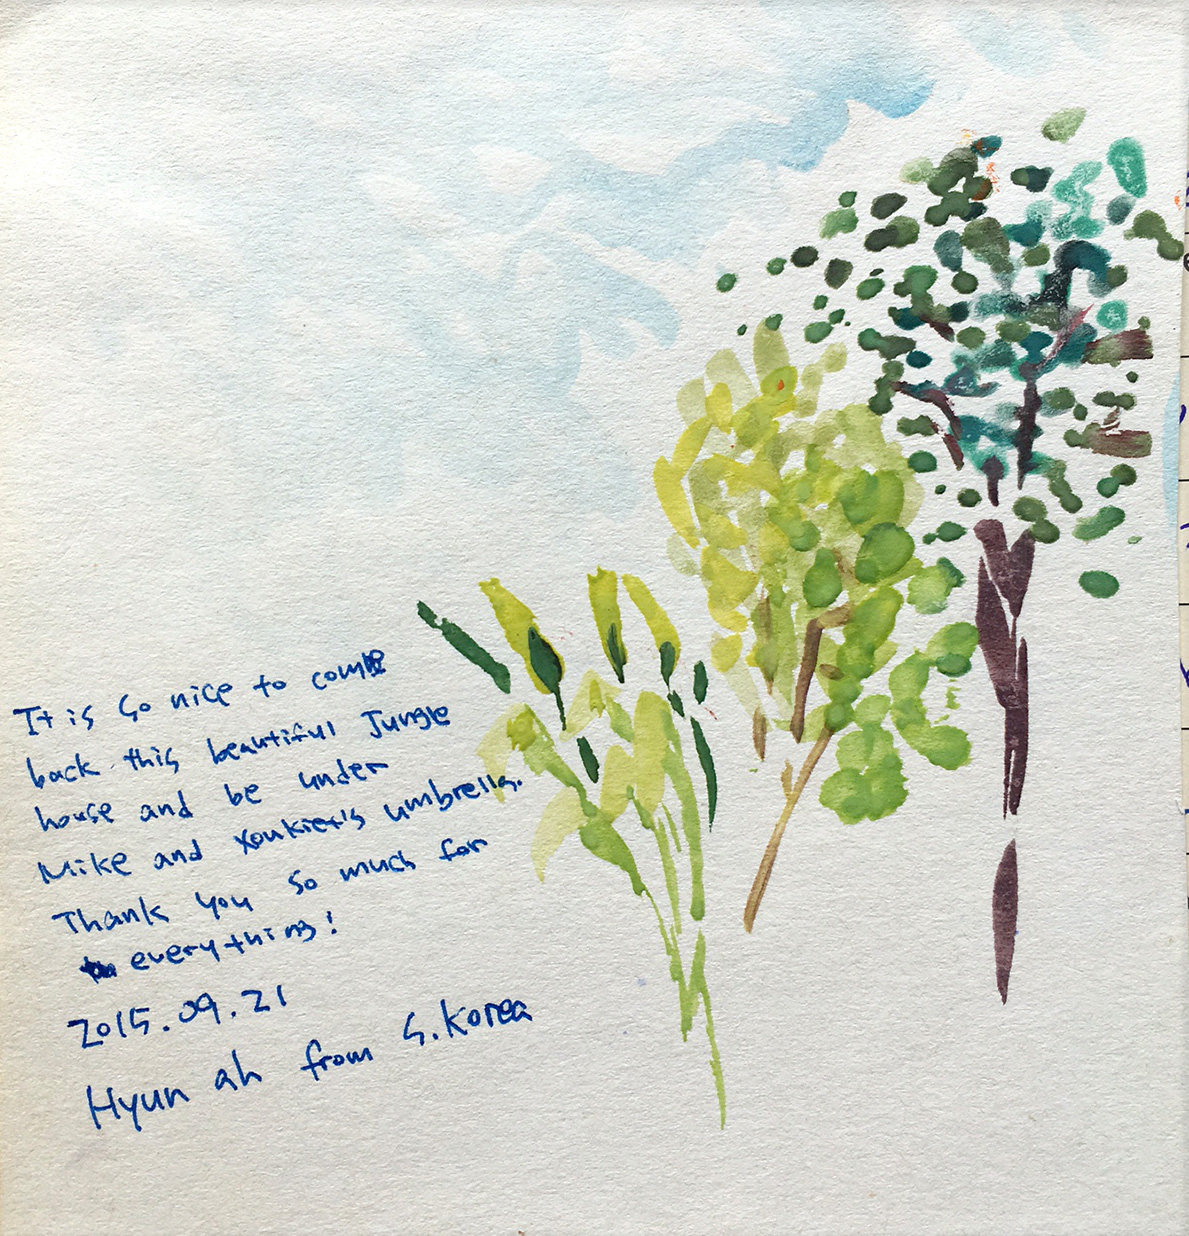 It is so nice to come
back this beautiful Jungle
house and be under
Mike and Youkie's umbrella.
Thank you so much for
everything!
2015.09.21
Hyun ah from S.Korea